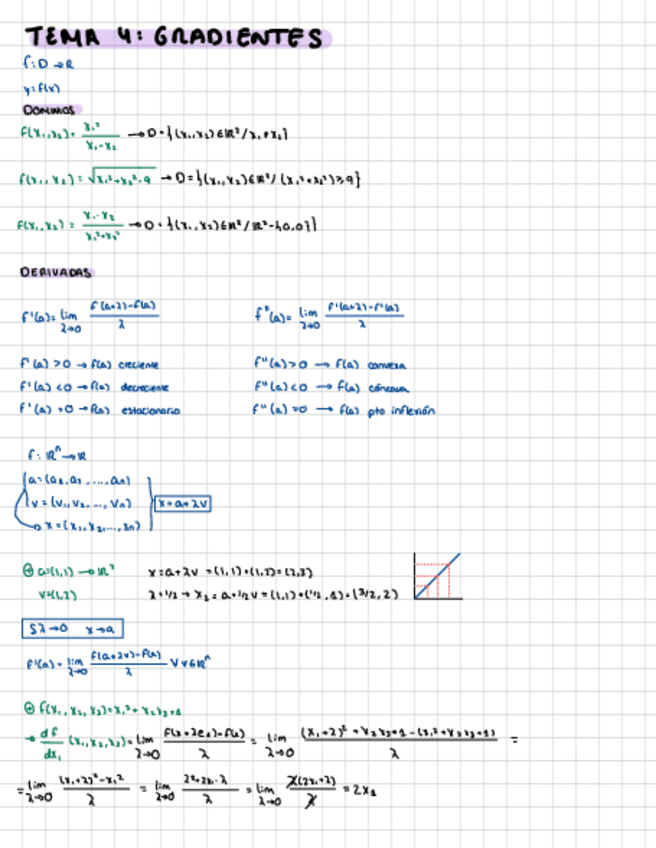 TEMA 4: GRADIENTES
f: D → R
y = f(x)
DOMINIOS
f(x₁, x₂) = x₁² / (x₁ - x₂) → D = {(x₁, x₂) ∈ ℝ² / x₁ ≠ x₂}
f(x₁, x₂) = √(x₁² + x₂² - 9) → D = {(x₁, x₂) ∈ ℝ² / (x₁² + x₂²) ≥ 9}
f(x₁, x₂) = (x₁ · x₂) / (x₁² + x₂²) → D = {(x₁, x₂) ∈ ℝ² / ℝ² - {0,0}}
DERIVADAS
f'(a) = lim λ→0 (f(a+λ) - f(a)) / λ    f''(a) = lim λ→0 (f'(a+λ) - f'(a)) / λ
f'(a) > 0 → f(a) creciente    f''(a) > 0 → f(a) convexa
f'(a) < 0 → f(a) decreciente    f''(a) < 0 → f(a) cóncava
f'(a) = 0 → f(a) estacionario    f''(a) = 0 → f(a) pto inflexión
f: ℝⁿ → ℝ
a = (a₁, a₂, ..., aₙ)
v = (v₁, v₂, ..., vₙ)    x = a + λv
x = (x₁, x₂, ..., xₙ)
a = (1,1) → ℝ²    x = a + λv = (1,1) + (1,2) = (2,3)
v = (1,2)    λ = 1/2 → x₂ = a + 1/2 v = (1,1) + (1/2, 1) = (3/2, 2)
Si λ→0    x→a
f'(a) = lim λ→0 (f(a+λv) - f(a)) / λ ∀ v ∈ ℝⁿ
f(x₁, x₂, x₃) = x₁² + x₂x₃ + 1
→ df/dx₁ (x₁, x₂, x₃) = lim λ→0 (f(x+λe₁) - f(x)) / λ = lim λ→0 ((x₁+λ)² + x₂x₃ + 1 - (x₁² + x₂x₃ + 1)) / λ =
= lim λ→0 ((x₁+λ)² - x₁²) / λ = lim λ→0 (λ² + 2x₁·λ) / λ = lim λ→0 λ(2x₁+λ) / λ = 2x₁